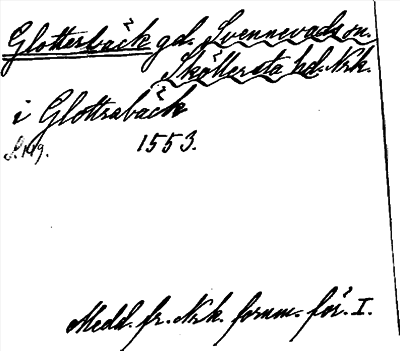 Glottersbäck gd. Svennevads sn.
Sköllersta hd. Nrk.
i Glottrabäck
S. 149. 1553.
Medd. fr. Nrk. fornm. för. I.